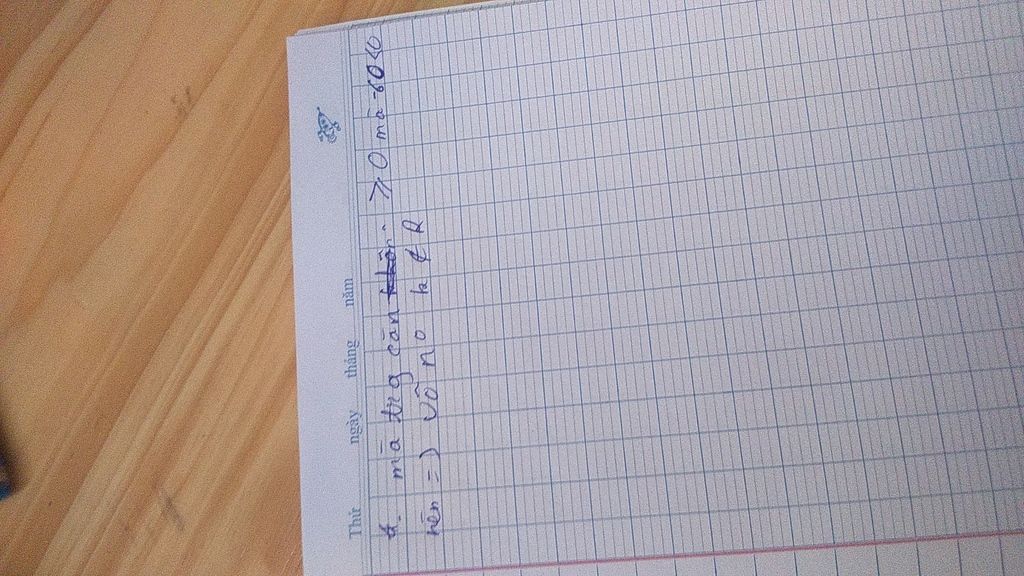 Thứ ngày tháng năm
d. mà trg căn ≥ 0 mà -60 < 0
nên => vô no k ∉ R